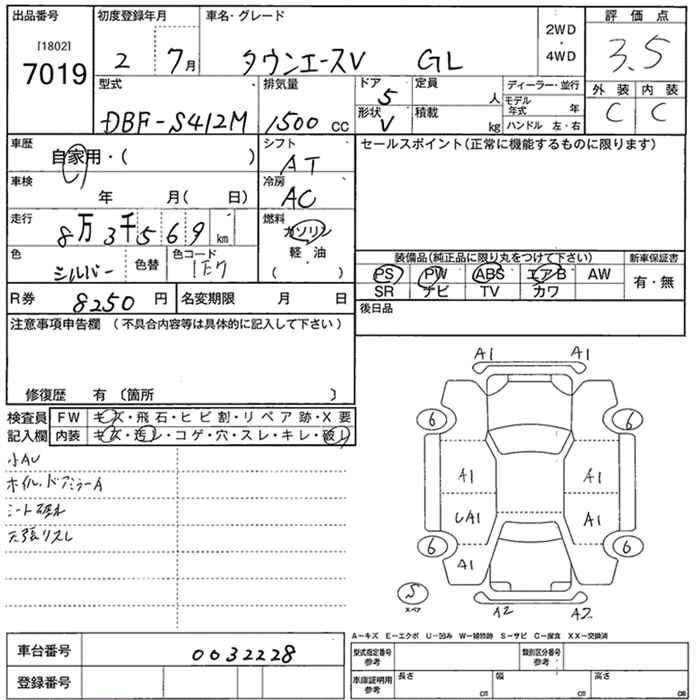 出品番号 初度登録年月 車名・グレード
[1802]
7019
2 7月
タウンエースV GL
2WD
・
4WD
評価点
3.5
外装 内装
C C
型式
DBF-S412M
排気量
1500 cc
ドア
5
定員
人
形状
V
積載
kg
ディーラー・並行
モデル年式 年
ハンドル 左・右
車歴
自家用・( )
シフト
AT
セールスポイント(正常に機能するものに限ります)
車検
年 月( 日)
冷房
AC
走行
8万3千569 km
燃料
ガソリン
軽油
( )
色
シルバー
色替
色コード
1E7
装備品(純正品に限り丸をつけて下さい) 新車保証書
PS PW ABS エアB AW
SR ナビ TV カワ
有・無
R券 8250 円 名変期限 月 日
後日品
注意事項申告欄 (不具合内容等は具体的に記入して下さい)
修復歴 有 〔箇所 〕
検査員
記入欄
FW キズ・飛石・ヒビ割・リペア跡・X要
内装 キズ・汚レ・コゲ・穴・スレ・キレ・破レ
小AU
ホイル、ドアミラーA
シート破れ
天張りスレ
A1 A1
6 6
A1 A1
UA1 A1
6 6
A1
S
スペア
A2 A2
A-キズ E-エクボ U-凹み W-補修跡 S-サビ C-腐食 XX-交換済
車台番号 0032228
登録番号
型式指定番号
参考
類別区分番号
参考
車庫証明用
参考
長さ cm
幅 cm
高さ cm